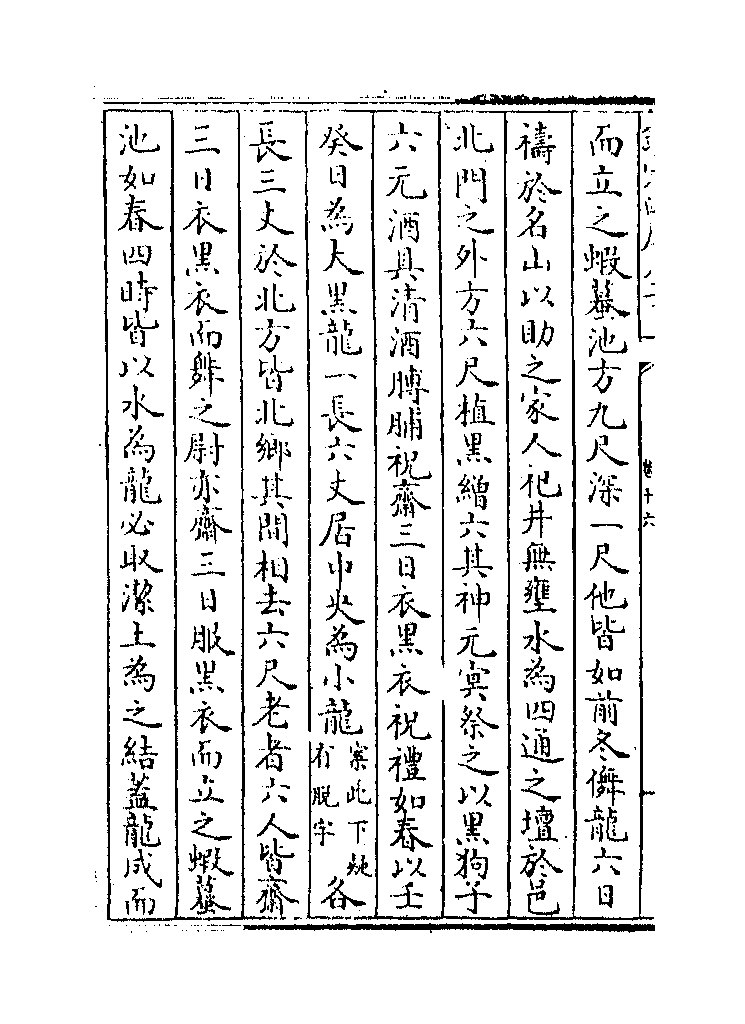 而立之蝦蟇池方九尺深一尺他皆如前冬儛龍六日
禱於名山以助之家人祀井無壅水為四通之壇於邑
北門之外方六尺植黑繒六其神元冥祭之以黑狗子
六元酒具清酒膊脯祝齋三日衣黑衣祝禮如春以壬
癸日為大黑龍一長六丈居中央為小龍案此下疑有脱字各
長三丈於北方皆北鄉其間相去六尺老者六人皆齋
三日衣黑衣而舞之尉亦齋三日服黑衣而立之蝦蟇
池如春四時皆以水為龍必取潔土為之結蓋龍成而
卷十六